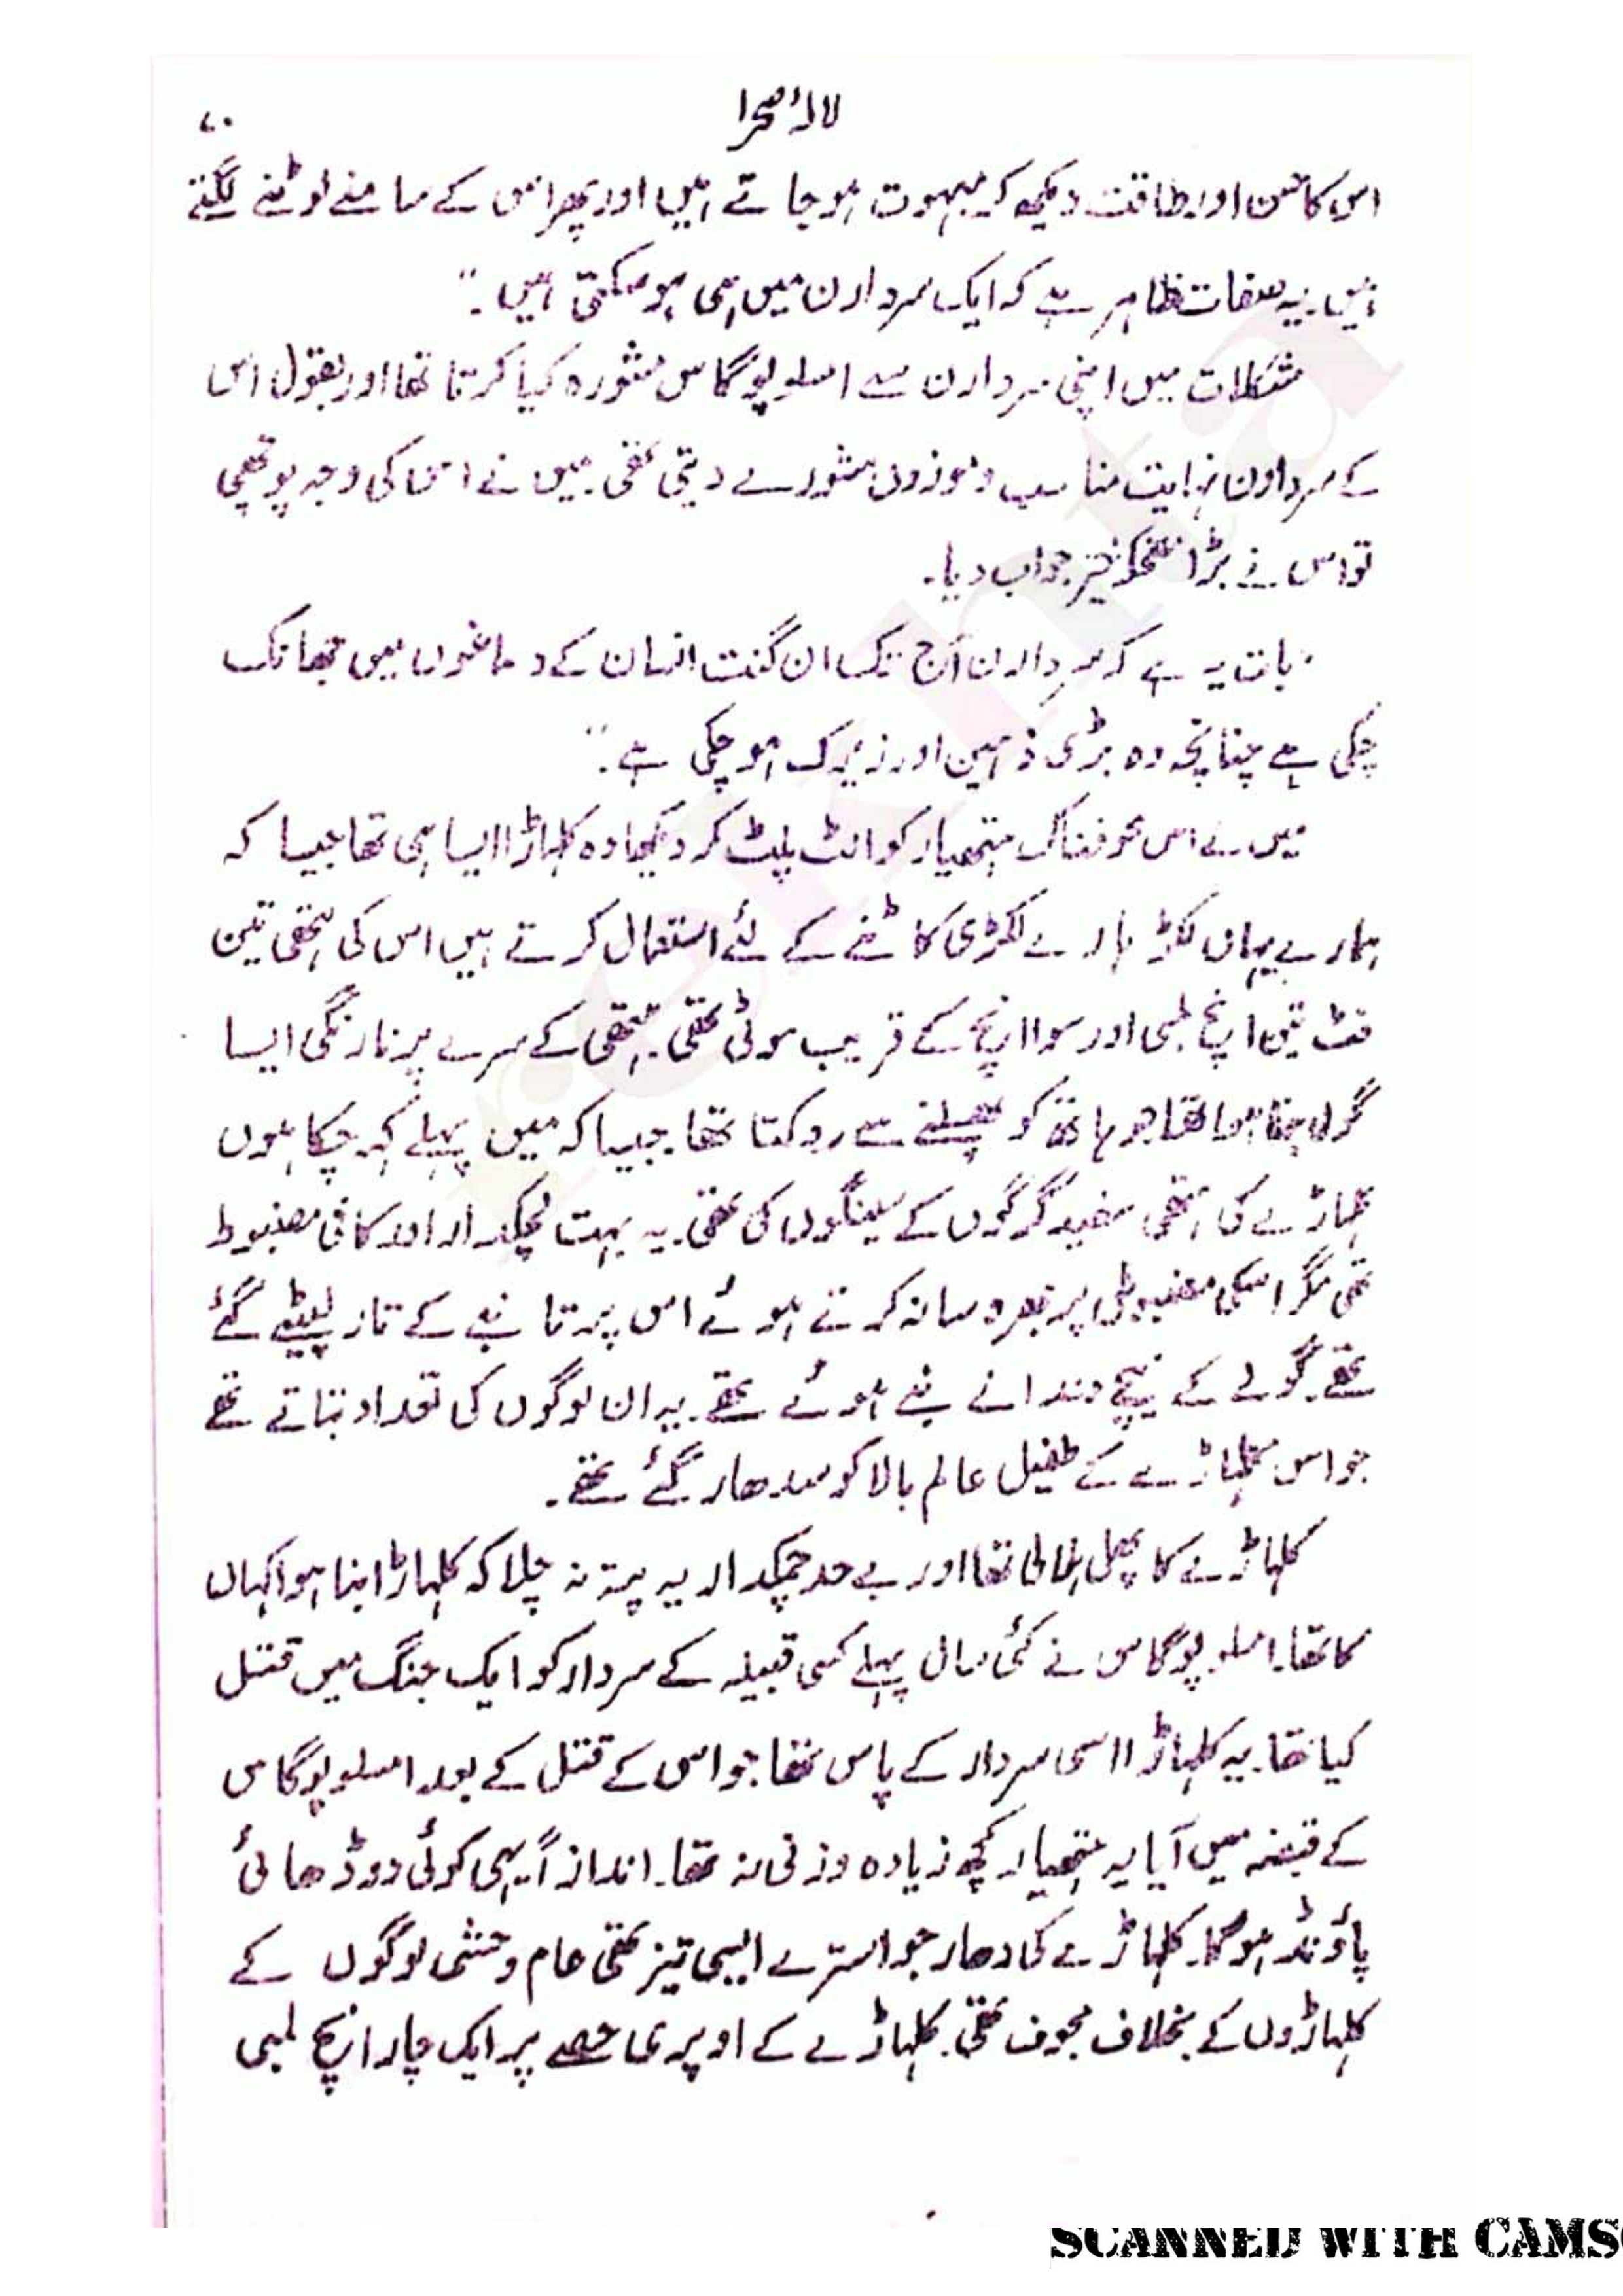 لالۂ صحرا
۷۰
اس کا حسن اور طاقت دیکھ کر مبہوت ہو جاتے ہیں اور پھر اس کے سامنے لوٹنے لگتے
ہیں یہ صفات ظاہر ہے کہ ایک سردارن میں ہی ہو سکتی ہیں۔"
مشکلات میں اپنی سردارن سے اسلوپوگاس مشورہ کیا کرتا تھا اور بقول اس
کے سردارن نہایت مناسب و موزوں مشورے دیتی تھی۔ میں نے اس کی وجہ پوچھی
تو اس نے بڑا مضحکہ خیز جواب دیا۔
"بات یہ ہے کہ سردارن آج تک ان گنت انسان کے دماغوں میں جھانک
چکی ہے چنانچہ وہ بڑی ذہین اور زیرک ہو چکی ہے۔"
میں نے اس خوفناک ہتھیار کو الٹ پلٹ کر دیکھا وہ کلہاڑا ایسا ہی تھا جیسا کہ
ہمارے یہاں لکڑ ہارے لکڑی کاٹنے کے لئے استعمال کرتے ہیں اس کی ہتھی تین
فٹ تین اپنچ لمبی اور سوا اپنچ کے قریب موٹی تھی۔ ہتھی کے سرے پر نارنگی ایسا
گولہ بنا ہوا تھا جو ہاتھ کو پھسلنے سے روکتا تھا۔ جیسا کہ میں پہلے کہہ چکا ہوں
کلہاڑے کی ہتھی سفید کرگوں کے سینگوں کی تھی۔ یہ بہت لچکدار اور کافی مضبوط
تھی مگر اسکی مضبوطی پر بھروسا نہ کرتے ہوئے اس پر تانبے کے تار لپیٹے گئے
تھے۔ گولے کے نیچے دندانے بنے ہوئے تھے۔ یہ ان لوگوں کی تعداد بتاتے تھے
جو اس کلہاڑے کے طفیل عالم بالا کو سدھار گئے تھے۔
کلہاڑے کا پھل ہلالی تھا اور بے حد چمکدار یہ پتہ نہ چلا کہ کلہاڑا بنا ہوا کہاں
کا تھا۔ اسلوپوگاس نے کئی سال پہلے کسی قبیلہ کے سردار کو ایک جنگ میں قتل
کیا تھا۔ یہ کلہاڑا اسی سردار کے پاس تھا جو اس کے قتل کے بعد اسلوپوگاس
کے قبضہ میں آیا یہ ہتھیار کچھ زیادہ وزنی نہ تھا۔ اندازاً یہی کوئی دو ڈھائی
پاؤنڈ ہوگا۔ کلہاڑے کی دھار جو استرے ایسی تیز تھی عام وحشی لوگوں کے
کلہاڑوں کے بخلاف مجوف تھی۔ کلہاڑے کے اوپری حصے پر ایک چار انچ لمبی
SCANNED WITH CAMS